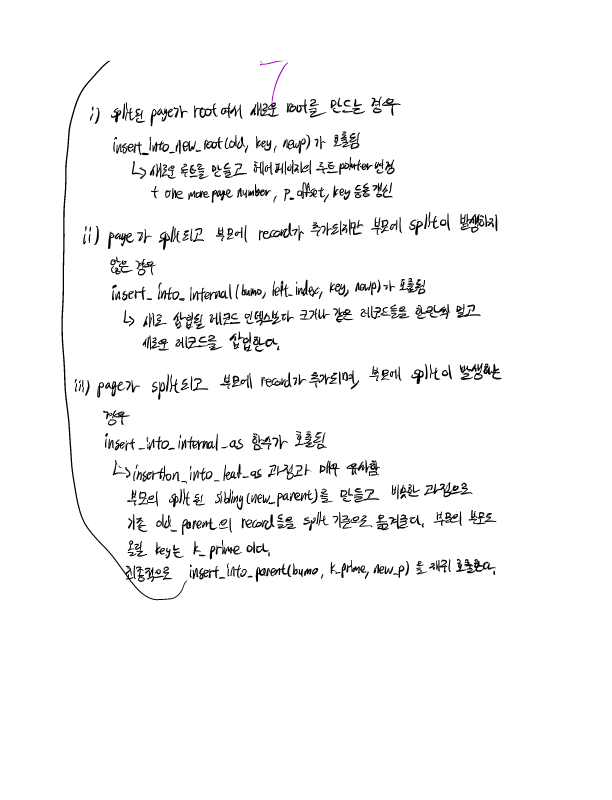 7
i) split된 page가 root여서 새로운 root를 만드는 경우
insert_into_new_root(old, key, newp)가 호출됨
↳ 새로운 루트를 만들고 헤더페이지의 루트 pointer 변경
+ one more page number, p_offset, key 등등 갱신
ii) page가 split되고 부모에 record가 추가되지만 부모에 split이 발생하지
않은 경우
insert_into_internal(bumo, left_index, key, newp)가 호출됨
↳ 새로 삽입될 레코드 인덱스보다 크거나 같은 레코드들을 한칸씩 밀고
새로운 레코드를 삽입한다.
iii) page가 split되고 부모에 record가 추가되며, 부모에 split이 발생하는
경우
insert_into_internal_as 함수가 호출됨
↳ insertion_into_leaf_as 과정과 매우 유사함
부모의 split된 sibling(new_parent)를 만들고 비슷한 과정으로
기존 old_parent의 record들을 split 기준으로 옮겨준다. 부모의 부모로
올릴 key는 k_prime 이다.
최종적으로 insert_into_parent(bumo, k_prime, new_p)를 재귀 호출한다.